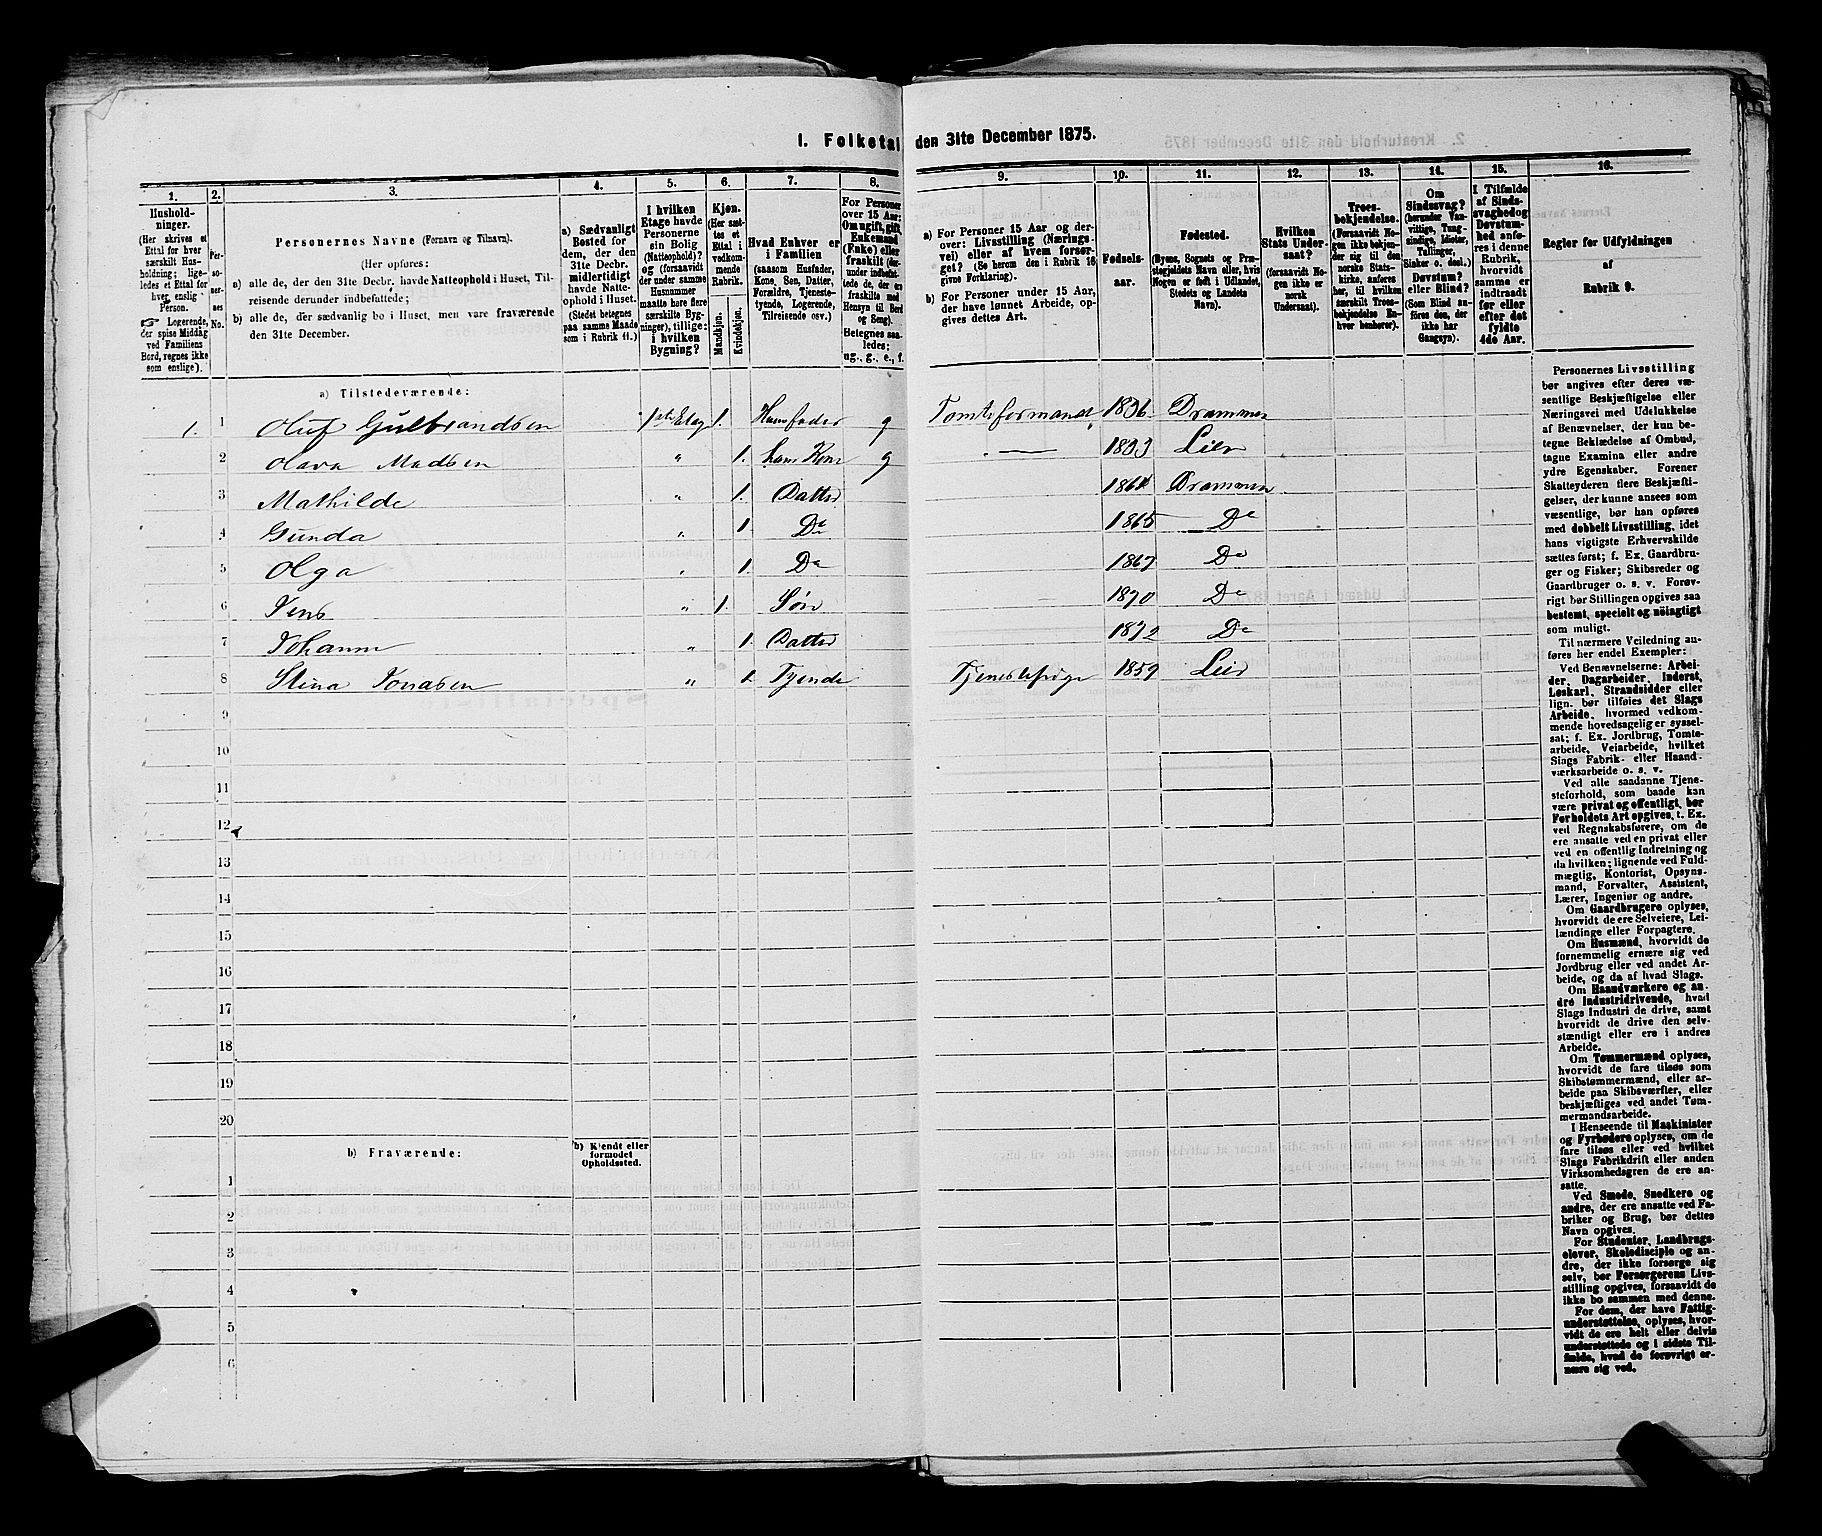 1. Folketal den 31te December 1875.
1. 2. 3. 4. 5. 6. 7. 8. 9. 10. 11. 12. 13. 14. 15. 16.
Hushold-
ninger.
(Her skrives et
Ettal for hver
særskilt Hus-
holdning; lige-
ledes et Ettal for
hver enslig
Person.
☞ Logerende,
der spise Middag
ved Familiens
Bord, regnes ikke
som enslige).
Per-
so-
ner-
nes
No.
Personernes Navne (Fornavn og Tilnavn).
(Her opføres:
a) alle de, der den 31te Decbr. havde Natteophold i Huset, Til-
reisende derunder indbefattede;
b) alle de, der sædvanlig bo i Huset, men vare fraværende
den 31te December.
a) Sædvanligt
Bosted for
dem, der den
31te Decbr.
midlertidigt
havde Natte-
ophold i Huset.
(Stedet betegnes
paa samme Maade
som i Rubrik 11.)
I hvilken
Etage havde
Personerne
sin Bolig
(Natteophold)?
og (forsaavidt
der under samme
Husnummer
maatte høre flere
særskilte Byg-
ninger), tillige:
i hvilken
Bygning?
Kjøn.
(Her sæt-
tes et
Ettal i
vedkom-
mende
Rubrik.
Mandkjøn.
Kvindekjøn.
Hvad Enhver er
i Familien
(saasom Husfader,
Kone, Søn, Datter,
Forældre, Tjeneste-
tyende, Logerende,
Tilreisende osv.)
For Personer
over 15 Aar:
Om ugift, gift,
Enkemand
(Enke) eller
fraskilt (der-
under indbefat-
tede de, der ere
fraskilte med
Hensyn til Bord
og Seng).
Betegnes saa-
ledes:
ug., g., e., f.
a) For Personer 15 Aar og der-
over: Livsstilling (Nærings-
vei) eller af hvem forsør-
get? (Se herom den i Rubrik 16
givne Forklaring).
b) For Personer under 15 Aar,
der have lønnet Arbeide, op-
gives dettes Art.
Fødsels-
aar.
Fødested.
(Byens, Sognets og Præ-
stegjeldets Navn eller, hvis
Nogen er født i Udlandet,
Stedets og Landets
Navn).
Hvilken
Stats Under-
saat?
(forsaavidt No-
gen ikke er
norsk
Undersaat).
Troes-
bekjendelse.
(Forsaavidt No-
gen ikke bekjen-
der sig til den
norske Stats-
kirke, anføres
her, til hvilken
særskilt Troes-
bekjendelse En-
hver henhører).
Om
Sindssvag?
(herunder Van-
vittige, Tung-
sindige, Idioter,
Tullinger,
Sinker o. desl.)
Døvstum?
eller Blind?
(Som Blind an-
føres den, der
ikke har
Gangsyn).
I Tilfælde
af Sinds-
svaghed og
Døvstum-
hed anfø-
res i denne
Rubrik,
hvorvidt
samme er
indtraadt
før eller
efter det
fyldte
4de Aar.
Regler for Udfyldningen
af
Rubrik 9.
a) Tilstedeværende:
1. 1 Oluf Gulbrandsen 1ste Etag 1. Husfader g Tomteformand 1836 Drammen
2 Hava Madsen „ 1. hans Kone g 1833 Lier
3 Mathilde „ 1. Datter 1861 Drammen
4 Gunda „ 1. Do 1865 Do
5 Olga „ 1. Do 1867 Do
6 Jens „ 1. Søn 1870 Do
7 Johanne „ 1. Datter 1872 Do
8 Stina Jonasen „ 1. Tjende Tjenestepige 1859 Lier
9
10
11
12
13
14
15
16
17
18
19
20
b) Fraværende:
b) Kjendt eller
formodet
Opholdssted.
1
2
3
4
5
6
Personernes Livsstilling
bør angives efter deres væ-
sentlige Beskjæftigelse eller
Næringsvei med Udelukkelse
af Benævnelser, der kun be-
tegne Beklædelse af Ombud,
tagne Examina eller andre
ydre Egenskaber. Forener
Skatteyderen flere Beskjæfti-
gelser, der kunne ansees som
væsentlige, bør han opføres
med dobbelt Livsstilling, idet
hans vigtigste Erhvervskilde
sættes først; f. Ex. Gaardbru-
ger og Fisker; Skibsreder og
Gaardbruger o. s. v. Forøv-
rigt bør Stillingen opgives saa
bestemt, specielt og nöiagtigt
som muligt.
Til nærmere Veiledning an-
føres her endel Exempler:
Ved Benævnelserne: Arbei-
der, Dagarbeider, Inderst,
Løskarl, Strandsidder eller
lign. bør tilføies det Slags
Arbeide, hvormed vedkom-
mende hovedsagelig er syssel-
sat; f. Ex. Jordbrug, Tomte-
arbeide, Veiarbeide, hvilket
Slags Fabrik- eller Haand-
værksarbeide o. s. v.
Ved alle saadanne Tjene-
steforhold, som baade kan
være privat og offentligt, bør
Forholdets Art opgives, t. Ex.
ved Regnskabsførere, om de
ere ansatte ved en privat eller
ved en offentlig Indretning og
da hvilken; lignende ved Fuld-
mægtig, Kontorist, Opsyns-
mand, Forvalter, Assistent,
Lærer, Ingeniør og andre.
Om Gaardbrugere oplyses,
hvorvidt de ere Selveiere, Lei-
lændinge eller Forpagtere.
Om Husmænd, hvorvidt de
fornemmelig ernære sig ved
Jordbrug eller ved andet Ar-
beide, og da af hvad Slags.
Om Haandværkere og an-
dre Industridrivende, hvad
Slags Industri de drive, samt
hvorvidt de drive den selv-
stændigt eller ere i andres
Arbeide.
Om Tømmermænd oplyses,
hvorvidt de fare tilsøs som
Skibstømmermænd, eller ar-
beide paa Skibsværfter, eller
beskjæftiges ved andet Tøm-
mermandsarbeide.
I Henseende til Maskinister
og Fyrbødere oplyses, om de
fare tilsøs eller ved hvilket
Slags Fabrikdrift eller anden
Virksomhedsgren de ere an-
satte.
Ved Smede, Snedkere og
andre, der ere ansatte ved Fa-
briker og Brug, bør dettes
Navn opgives.
For Studenter, Landbrugs-
elever, Skoledisciple og an-
dre, der ikke forsørge sig
selv, bør Forsørgerens Livs-
stilling opgives, forsaavidt de
ikke bo sammen med denne.
For dem, der have Fattig-
understøttelse, oplyses, hvor-
vidt de ere helt eller delvis
understøttede og i sidste Til-
fælde, hvad de forøvrigt er-
nære sig ved.